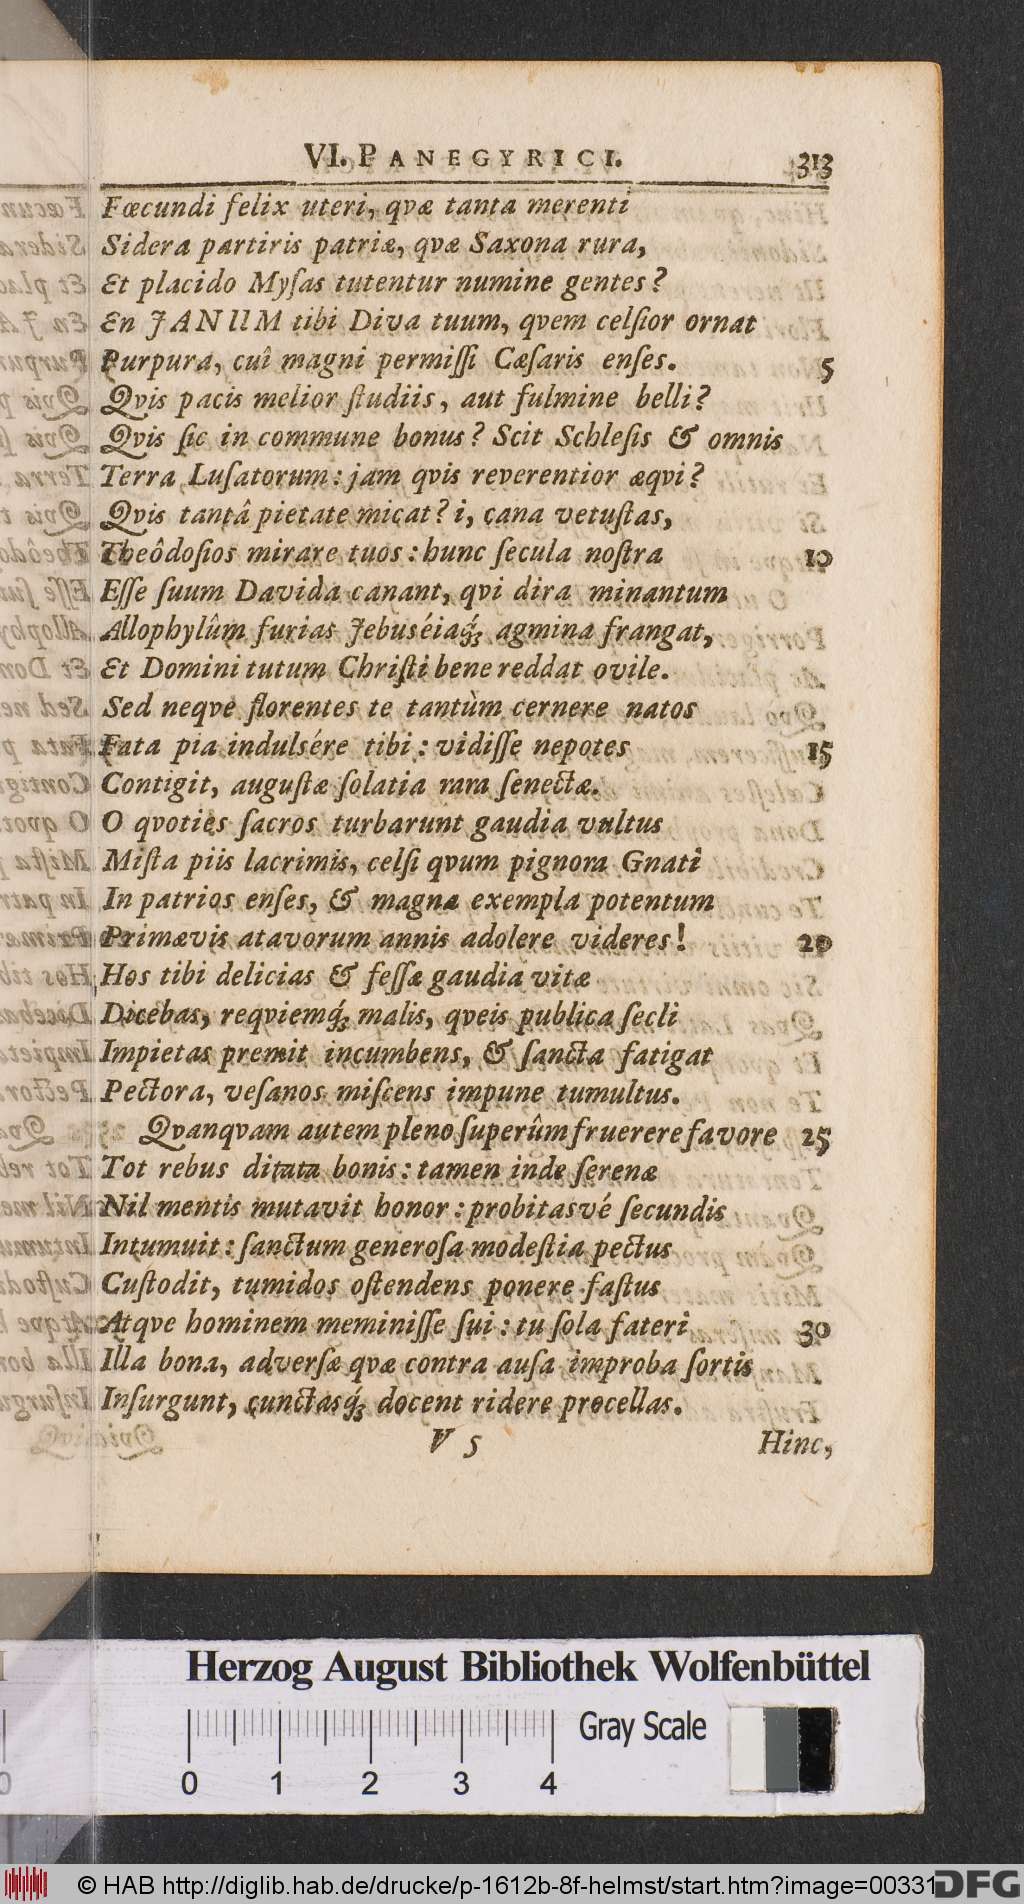 VI. PANEGYRICI. 313
Fœcundi felix uteri, qvæ tanta merenti
Sidera partiris patriæ, qvæ Saxona rura,
Et placido Myſas tutentur numine gentes?
En JANUM tibi Diva tuum, qvem celſior ornat
Purpura, cuî magni permiſſi Cæſaris enſes. 5
Qvis pacis melior ſtudiis, aut fulmine belli?
Qvis ſic in commune bonus? Scit Schleſis & omnis
Terra Luſatorum: jam qvis reverentior æqvi?
Qvis tantâ pietate micat? i, cana vetuſtas,
Theôdoſios mirare tuos: hunc ſecula noſtra 10
Eſſe ſuum Davida canant, qvi dira minantum
Allophylûm furias Jebuséiaq́ꝫ agmina frangat,
Et Domini tutum Chriſti bene reddat ovile.
Sed neqve florentes te tantùm cernere natos
Fata pia indulsére tibi: vidiſſe nepotes 15
Contigit, auguſtæ ſolatia rara ſenectæ.
O qvoties ſacros turbarunt gaudia vultus
Miſta piis lacrimis, celſi qvum pignora Gnati
In patrios enſes, & magna exempla potentum
Primævis atavorum annis adolere videres! 20
Hos tibi delicias & feſſæ gaudia vitæ
Dicebas, reqviemq́ꝫ malis, qveis publica ſecli
Impietas premit incumbens, & ſancta fatigat
Pectora, veſanos miſcens impune tumultus.
Qvanqvam autem pleno ſuperûm fruerere favore 25
Tot rebus ditata bonis: tamen inde ſerenæ
Nil mentis mutavit honor: probitasvé ſecundis
Intumuit: ſanctum generoſa modeſtia pectus
Cuſtodit, tumidos oſtendens ponere faſtus
Atqve hominem meminiſſe ſui: tu ſola fateri 30
Illa bona, adverſæ qvæ contra auſa improba ſortis
Inſurgunt, cunctasq́ꝫ docent ridere procellas.
V 5 Hinc,
Herzog August Bibliothek Wolfenbüttel
Gray Scale
0 1 2 3 4
© HAB http://diglib.hab.de/drucke/p-1612b-8f-helmst/start.htm?image=00331
DFG